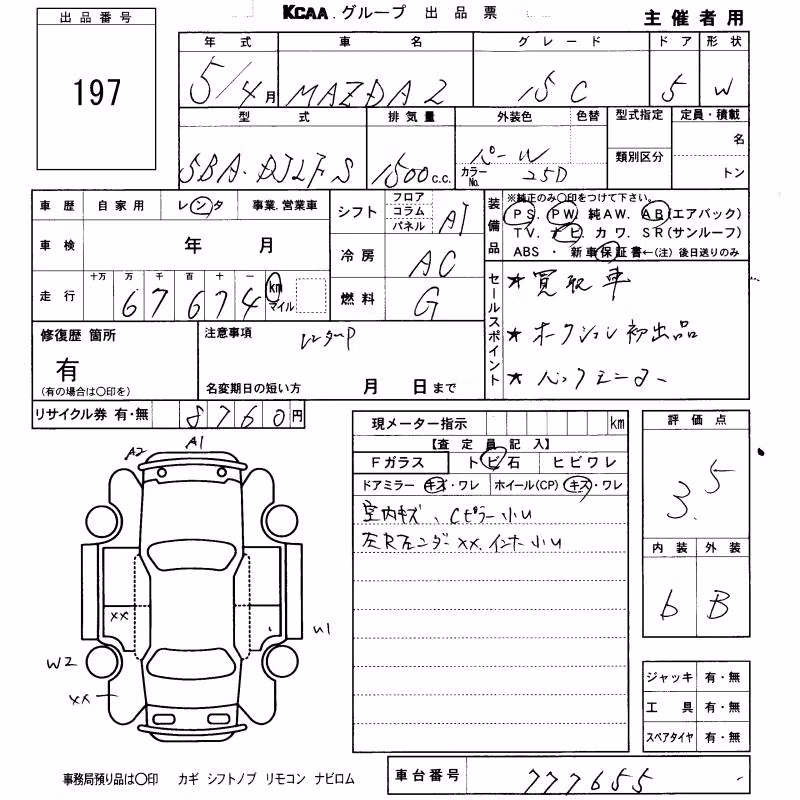 KCAA.グループ 出品票 主催者用
出品番号
197
年式 車名 グレード ドア 形状
5/4月 MAZDA2 15C 5 W
型式 排気量 外装色 色替 型式指定 定員・積載
SBA-DJLFS 1500c.c. パーW 名
カラーNo. 25D 類別区分 トン
車歴 自家用 レンタ 事業.営業車
車検 年 月
走行 十万 万 千 百 十 一
67674 km マイル
シフト フロア コラム パネル AT
冷房 AC
燃料 G
装備品 ※純正のみ○印をつけて下さい。
PS. PW. 純AW. AB(エアバック)
TV. ナビ. カワ. SR(サンルーフ)
ABS ・ 新車保証書←(注) 後日送りのみ
セールスポイント
*買取車
*オークション初出品
*バックモニター
修復歴 箇所
有
(有の場合は○印を)
注意事項 レンタUP
名変期日の短い方 月 日まで
リサイクル券 有・無 8760円
現メーター指示 km
【査定員記入】
Fガラス トビ石 ヒビワレ
ドアミラー キズ・ワレ ホイール(CP) キズ・ワレ
室内キズ、Cピラー小U
左Rフェンダー××.インナー小U
評価点
3.5
内装 外装
b B
A2 A1
××
U1
W2
××
ジャッキ 有・無
工具 有・無
スペアタイヤ 有・無
事務局預り品は○印 カギ シフトノブ リモコン ナビロム
車台番号 777655